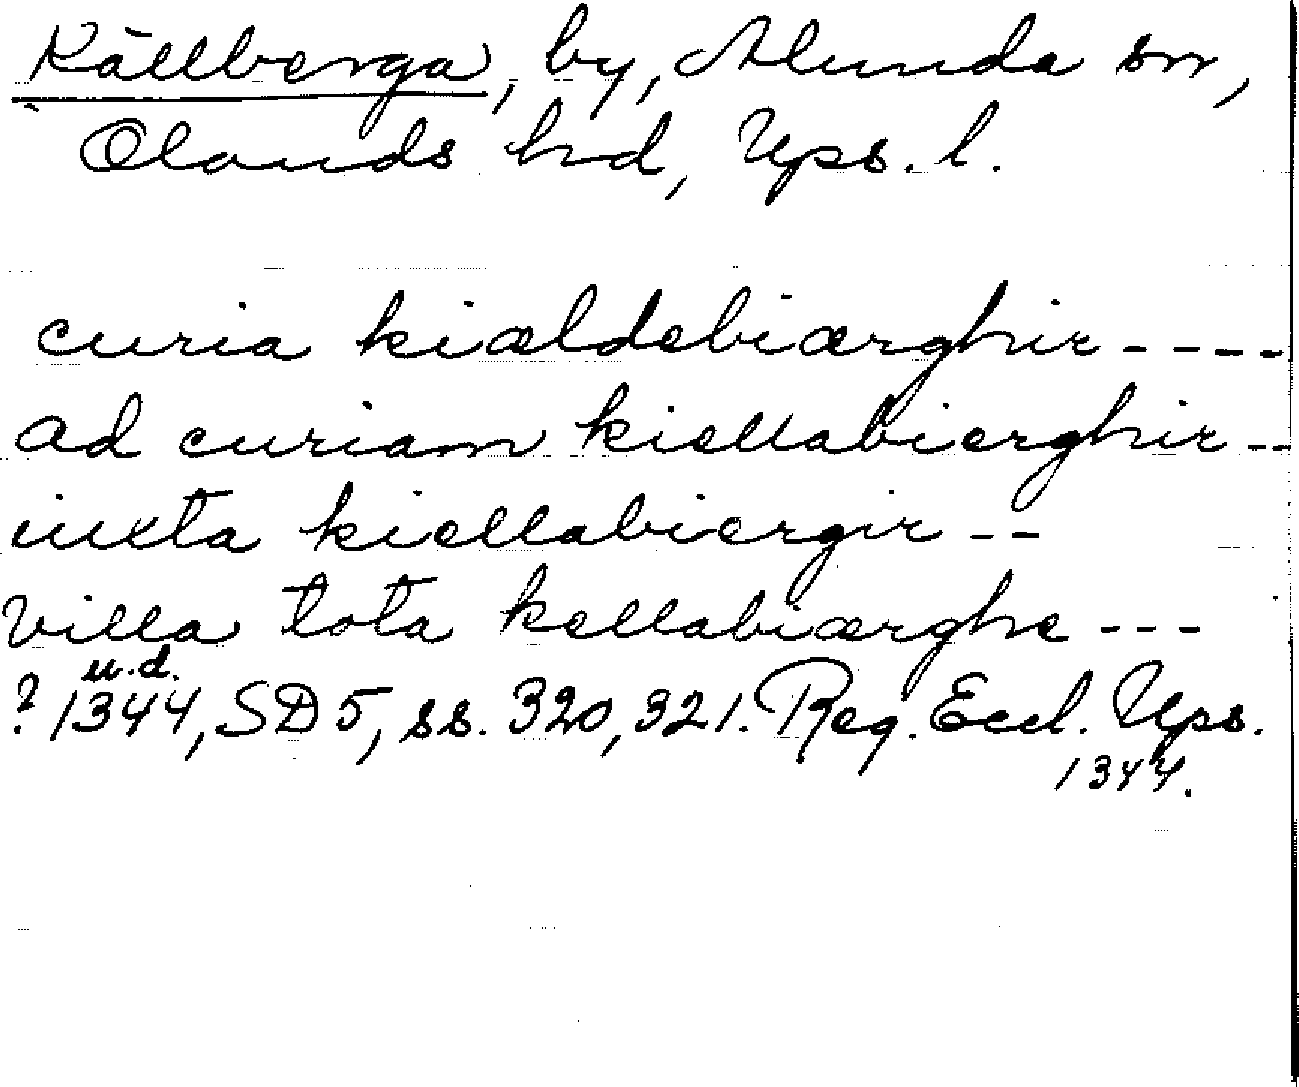 Källberga, by, Alunda sn,
Olands hd, Ups. l.
curia kiældebiærghir ----
ad curiam kiellabierghir --
iuxta kiellabiergir --
Villa tota kellabiærghe ---
u.d.
? 1344, SD 5, ss. 320, 321. Reg. Eccl. Ups.
1344.